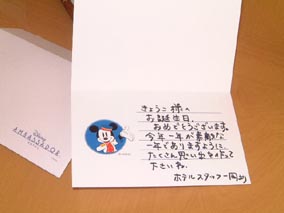 Disney
AMBASSADOR
HOTEL
きょうこ様へ
お誕生日、
おめでとうございます。
今年一年が素敵な
一年でありますように、
たくさん思い出を作って
下さいね。
ホテルスタッフ一同より